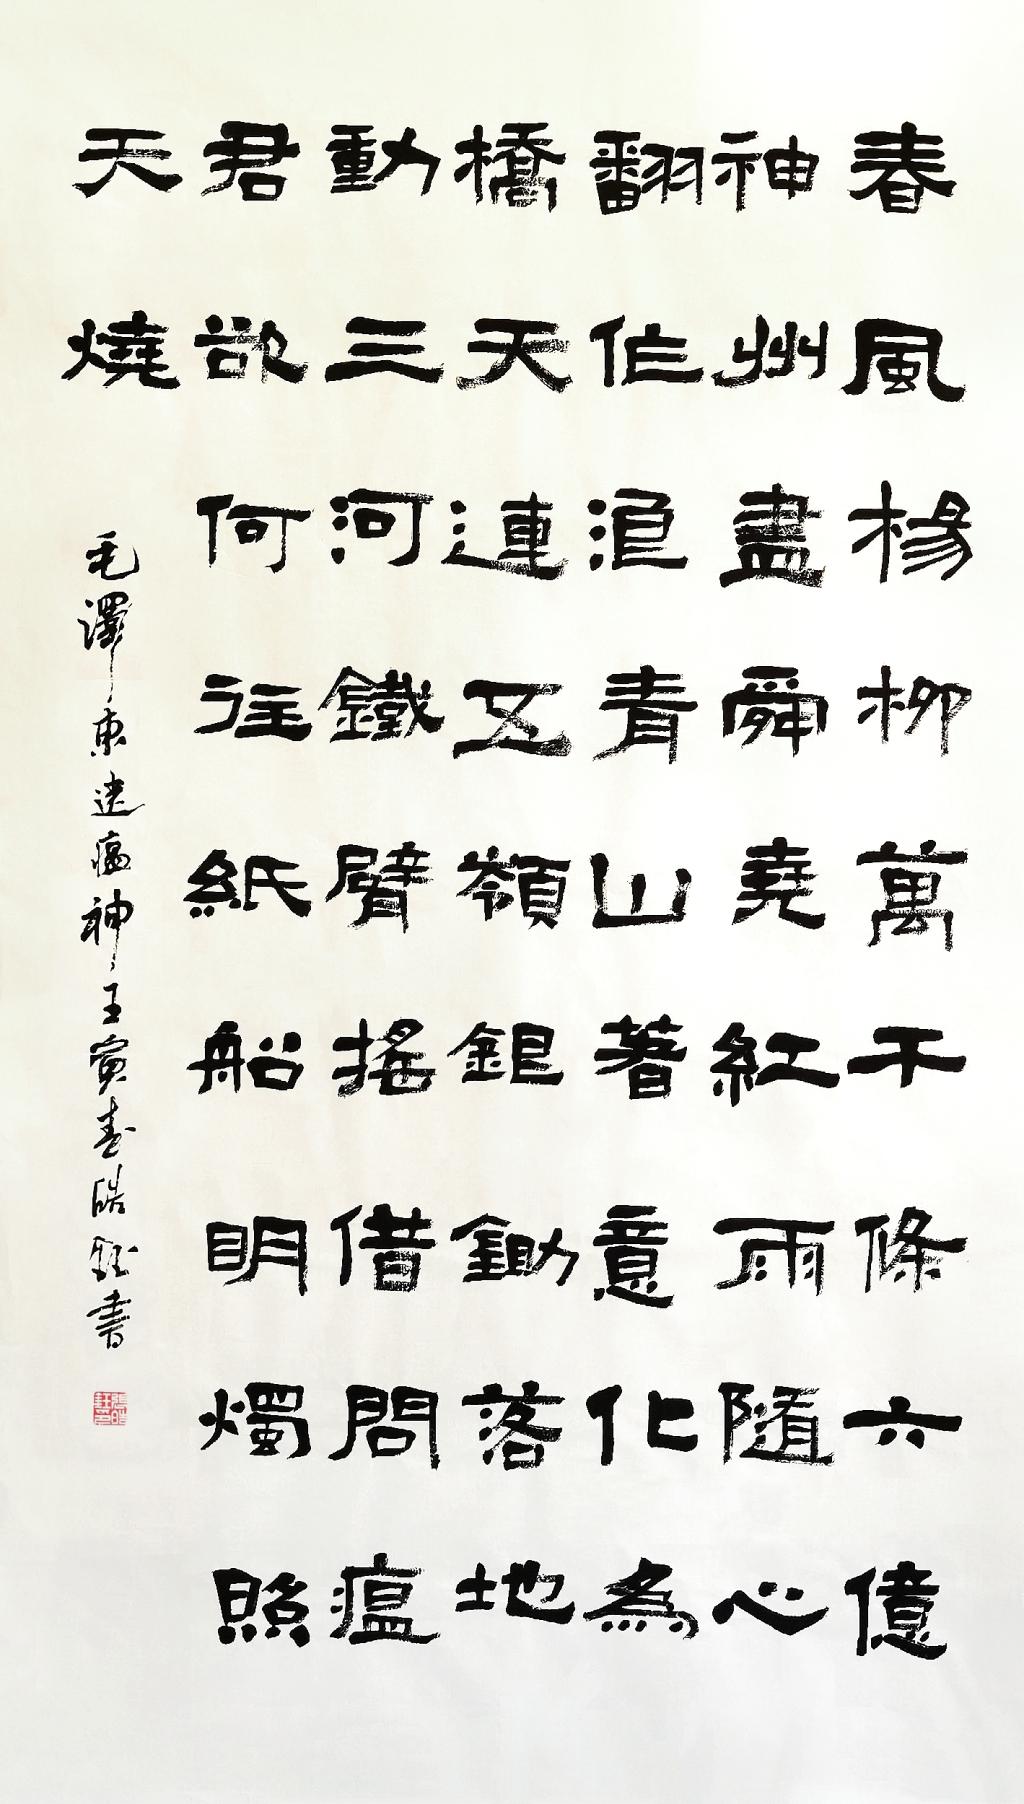 春風楊柳萬千條六億
神州盡舜堯紅雨隨心
翻作浪青山著意化為
橋天連五嶺銀鋤落地
動三河鐵臂搖借問瘟
君欲何往紙船明燭照
天燒
毛澤東送瘟神壬寅春皓鈺書